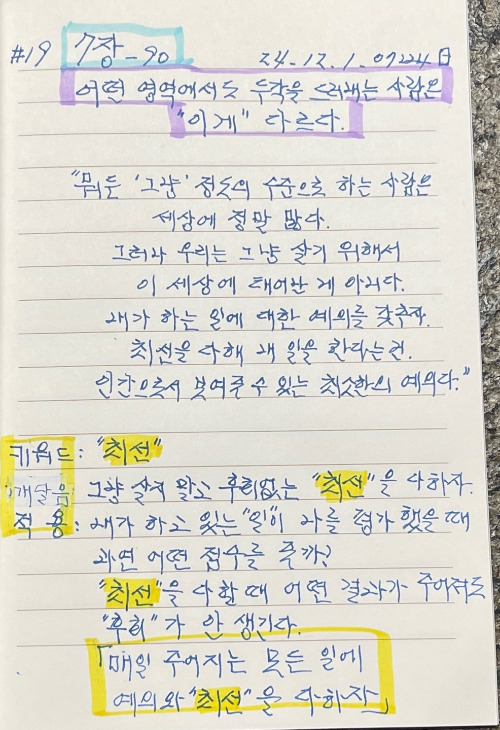 #19 7장-90 24.12.1.0724 日
어떤 영역에서도 두각을 드러내는 사람은
"이게" 다르다.
"뭐든 '그냥' 정도의 수준으로 하는 사람은
세상에 정말 많다.
그러나 우리는 그냥 살기 위해서
이 세상에 태어난 게 아니다.
내가 하는 일에 대한 예의를 갖추자.
최선을 다해 내 일을 한다는건.
인간으로서 보여줄 수 있는 최소한의 예의다."
키워드: "최선"
깨달음: 그냥 살지 말고 후회없는 "최선"을 다하자.
적용: 내가 하고 있는 "일"이 나를 평가 했을 때
과연 어떤 점수를 줄까?
"최선"을 다할 때 어떤 결과가 주어져도
"후회"가 안 생긴다.
「매일 주어지는 모든 일에
예의와 "최선"을 다하자」